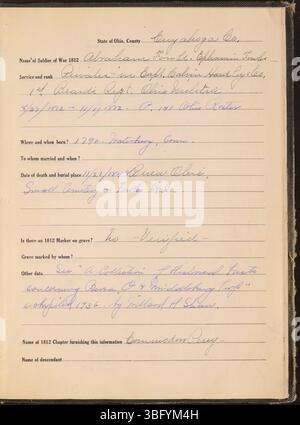 State of Ohio, County Cuyahoga Co.
Name of Soldier of War 1812 Abraham Fowls, Ephraim Fowls
Service and rank Privates in Capt. Calvin Co.
1st Regt. Ohio Militia
8/22/1812 P. 140 Ohio Roster
Where and when born? 1790 Waterbury, Conn.
To whom married and when?
Date of death and burial place Berea Ohio,
Small Cemetery
Is there an 1812 Marker on grave? No - Verified -
Grave marked by whom?
Other data See "A Collection of Historical Facts
concerning Berea, O. & Middleburg Twp."
compiled 1936 by Millard H.
Name of 1812 Chapter furnishing this information Commodore Perry -
Name of descendant
alamy
Image ID: 3BFYM4H
www.alamy.com